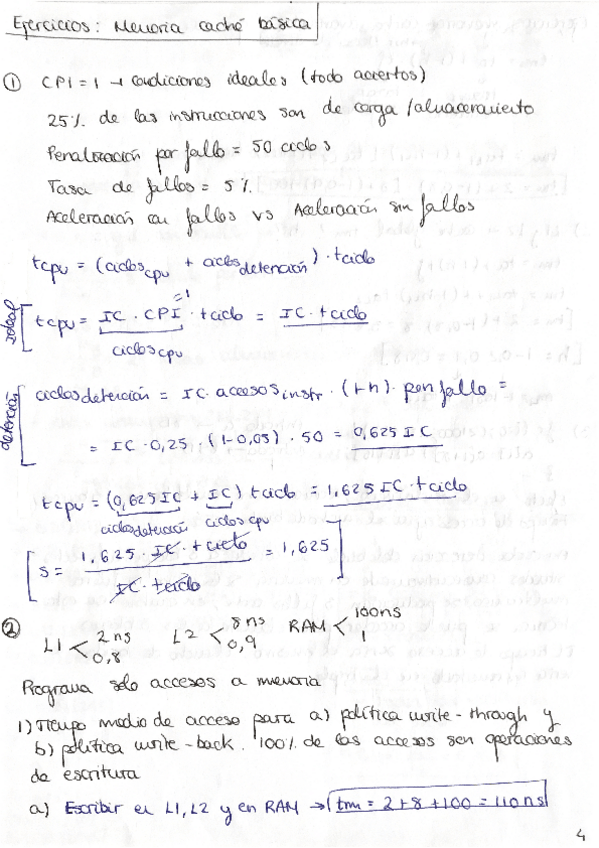 Ejercicios: Memoria caché básica
① CPI = 1 → condiciones ideales (todo aciertos)
25% de las instrucciones son de carga / almacenamiento
Penalización por fallo = 50 ciclos
Tasa de fallos = 5%
Aceleración con fallos vs Aceleración sin fallos
tcpu = (ciclos cpu + ciclos detención) · tciclo
ideal
=1
tcpu = IC · CPI · tciclo = IC · tciclo
ciclos cpu
detención
ciclos detención = IC · accesos instr · (1-h) · pen fallo =
= IC · 0,25 · (1-0,05) · 50 = 0,625 IC
tcpu = (0,625 IC + IC) tciclo = 1,625 IC · tciclo
ciclos detención ciclos cpu
s = 1,625 · IC · tciclo / IC · tciclo = 1,625
② L1 < 2 ns 0,8 L2 < 8 ns 0,9 RAM < 100 ns 1
Programa solo accesos a memoria
1) Tiempo medio de acceso para a) política write-through y
b) política write-back. 100% de los accesos son operaciones
de escritura
a) Escribir en L1, L2 y en RAM → tm = 2 + 8 + 100 = 110 ns
4